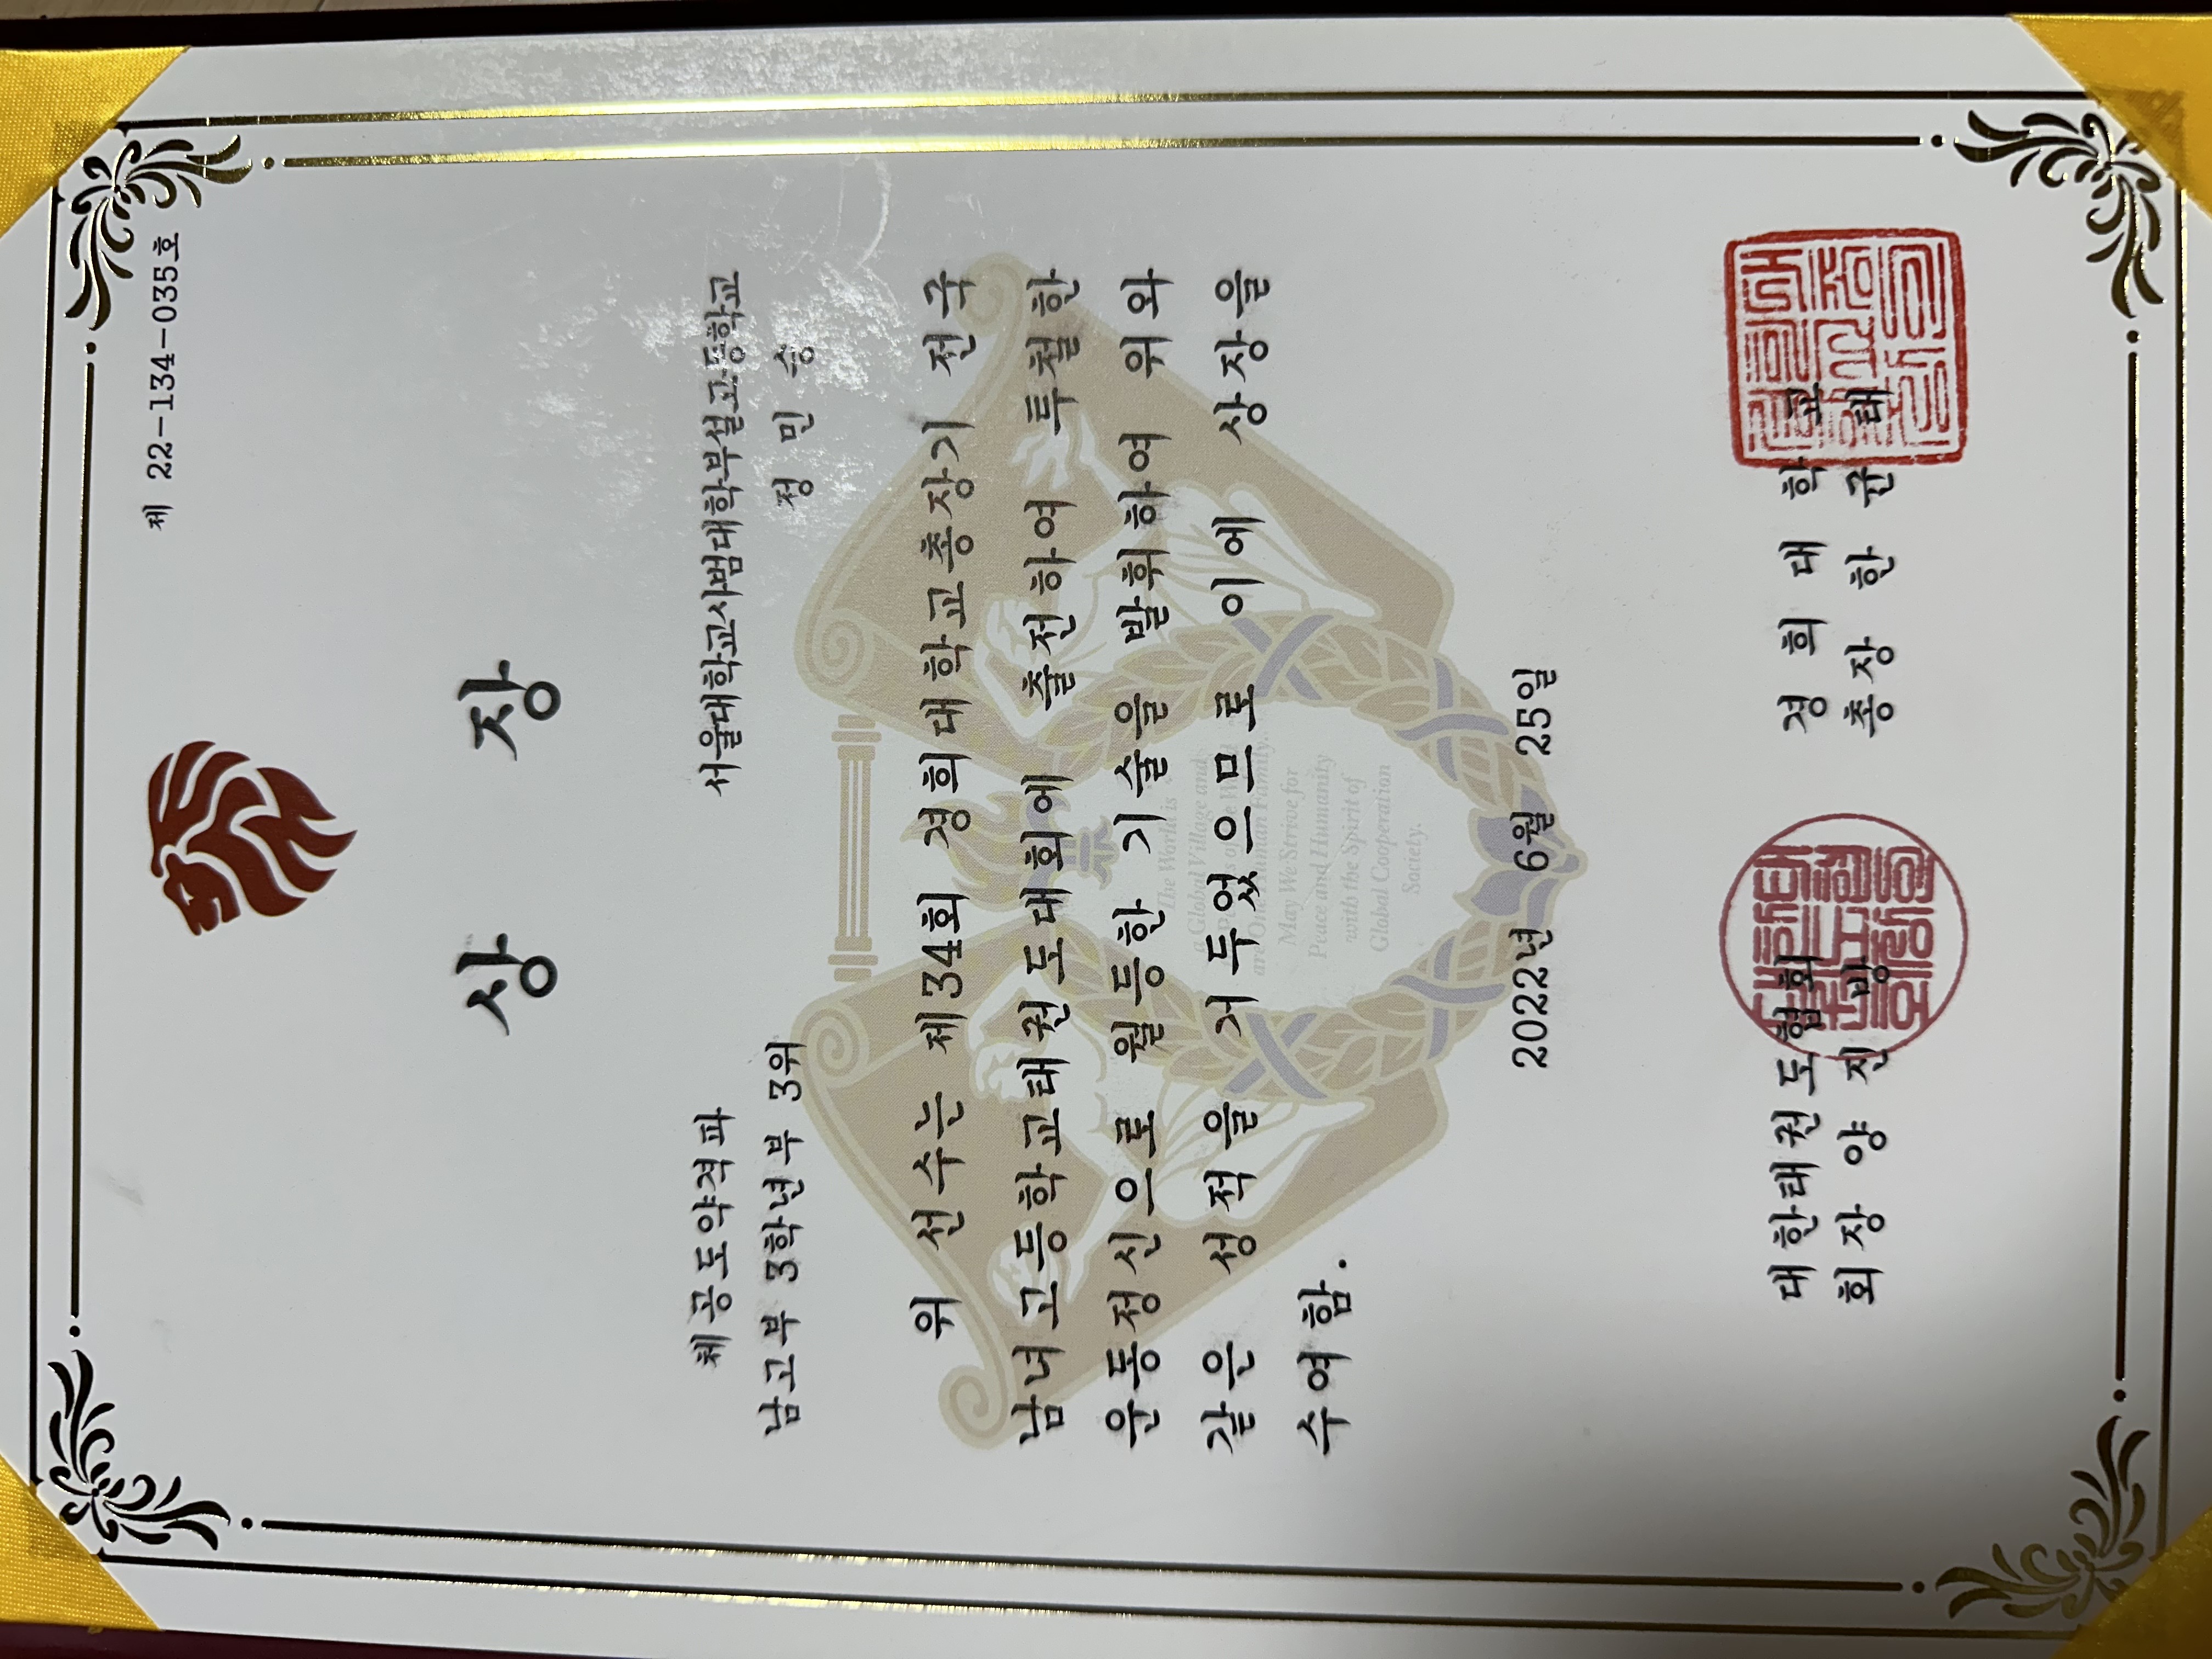 제 22-134-035호
상 장
체공도약격파 서울대학교사범대학부설고등학교
남고부 3학년부 3위 정 민 승
위 선수는 제34회 경희대학교총장기 전국
남녀고등학교태권도대회에 출전하여 투철한
운동정신으로 월등한 기술을 발휘하여 위와
같은 성적을 거두었으므로 이에 상장을
수여함.
The World is
a Global Village and
May We Strive for
Peace and Humanity
with the Spirit of
Global Cooperation
Society.
2022년 6월 25일
대한태권도협회 경 희 대 학 교
회장 양 진 방 총장 한 균 태